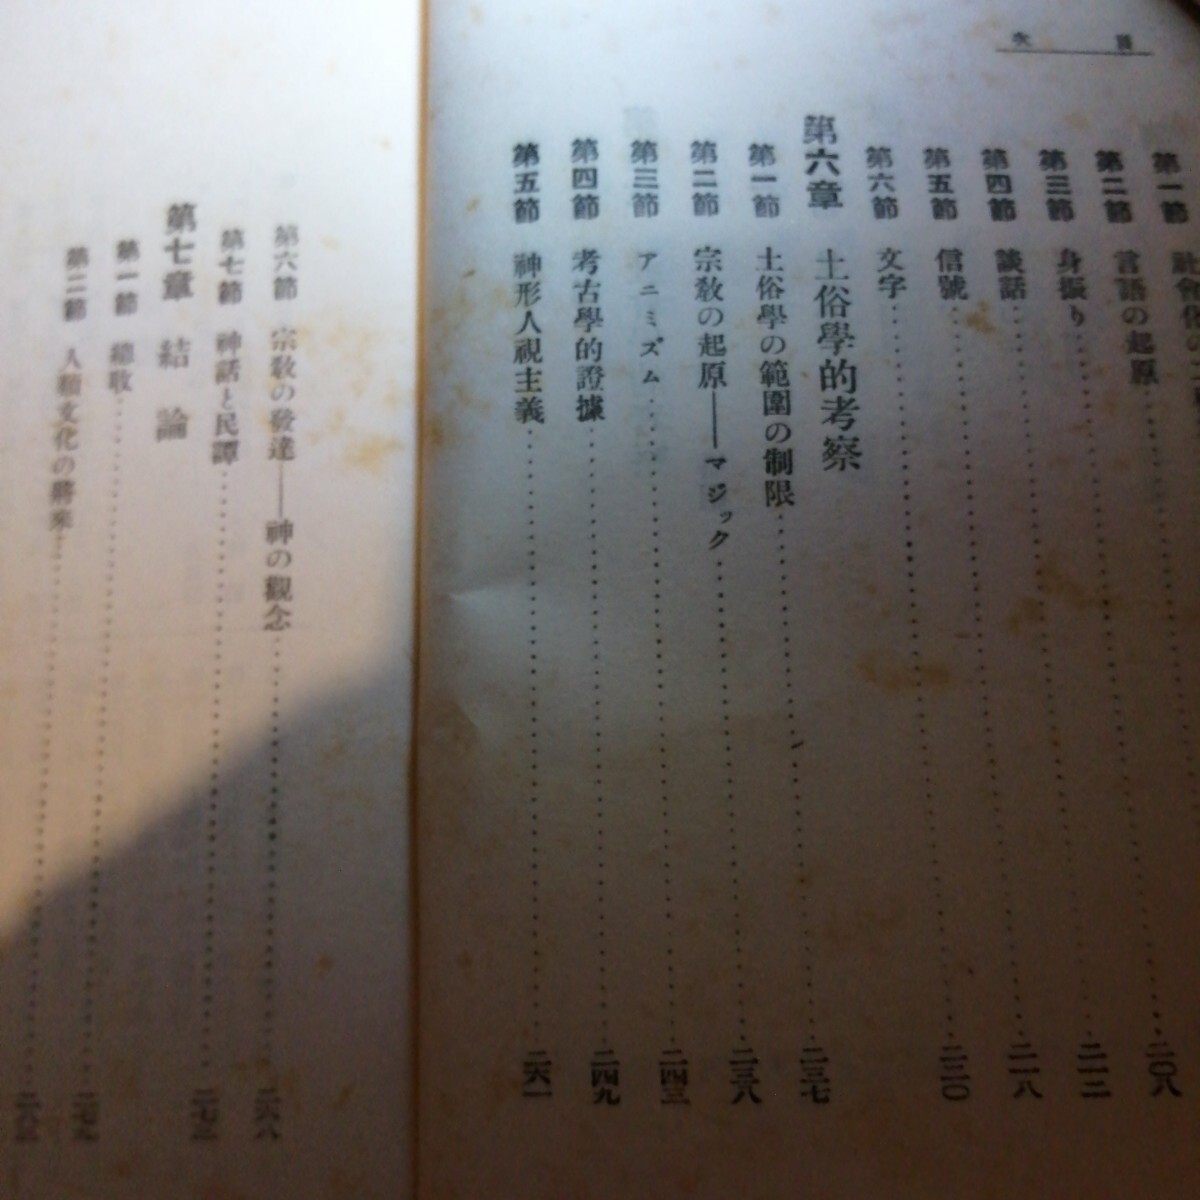 目次
第一節
第二節 言語の起原 二〇八
第三節 身振り 二一二
第四節 談話 二一八
第五節 信號 二二〇
第六節 文字
第六章 土俗學的考察
第一節 土俗學の範圍の制限 二三七
第二節 宗敎の起原——マジック 二三八
第三節 アニミズム 二四三
第四節 考古學的證據 二四九
第五節 神形人視主義 二六一
第六節 宗敎の發達——神の觀念 二六八
第七節 神話と民譚
第七章 結論
第一節 總收 二七九
第二節 人類文化の將來